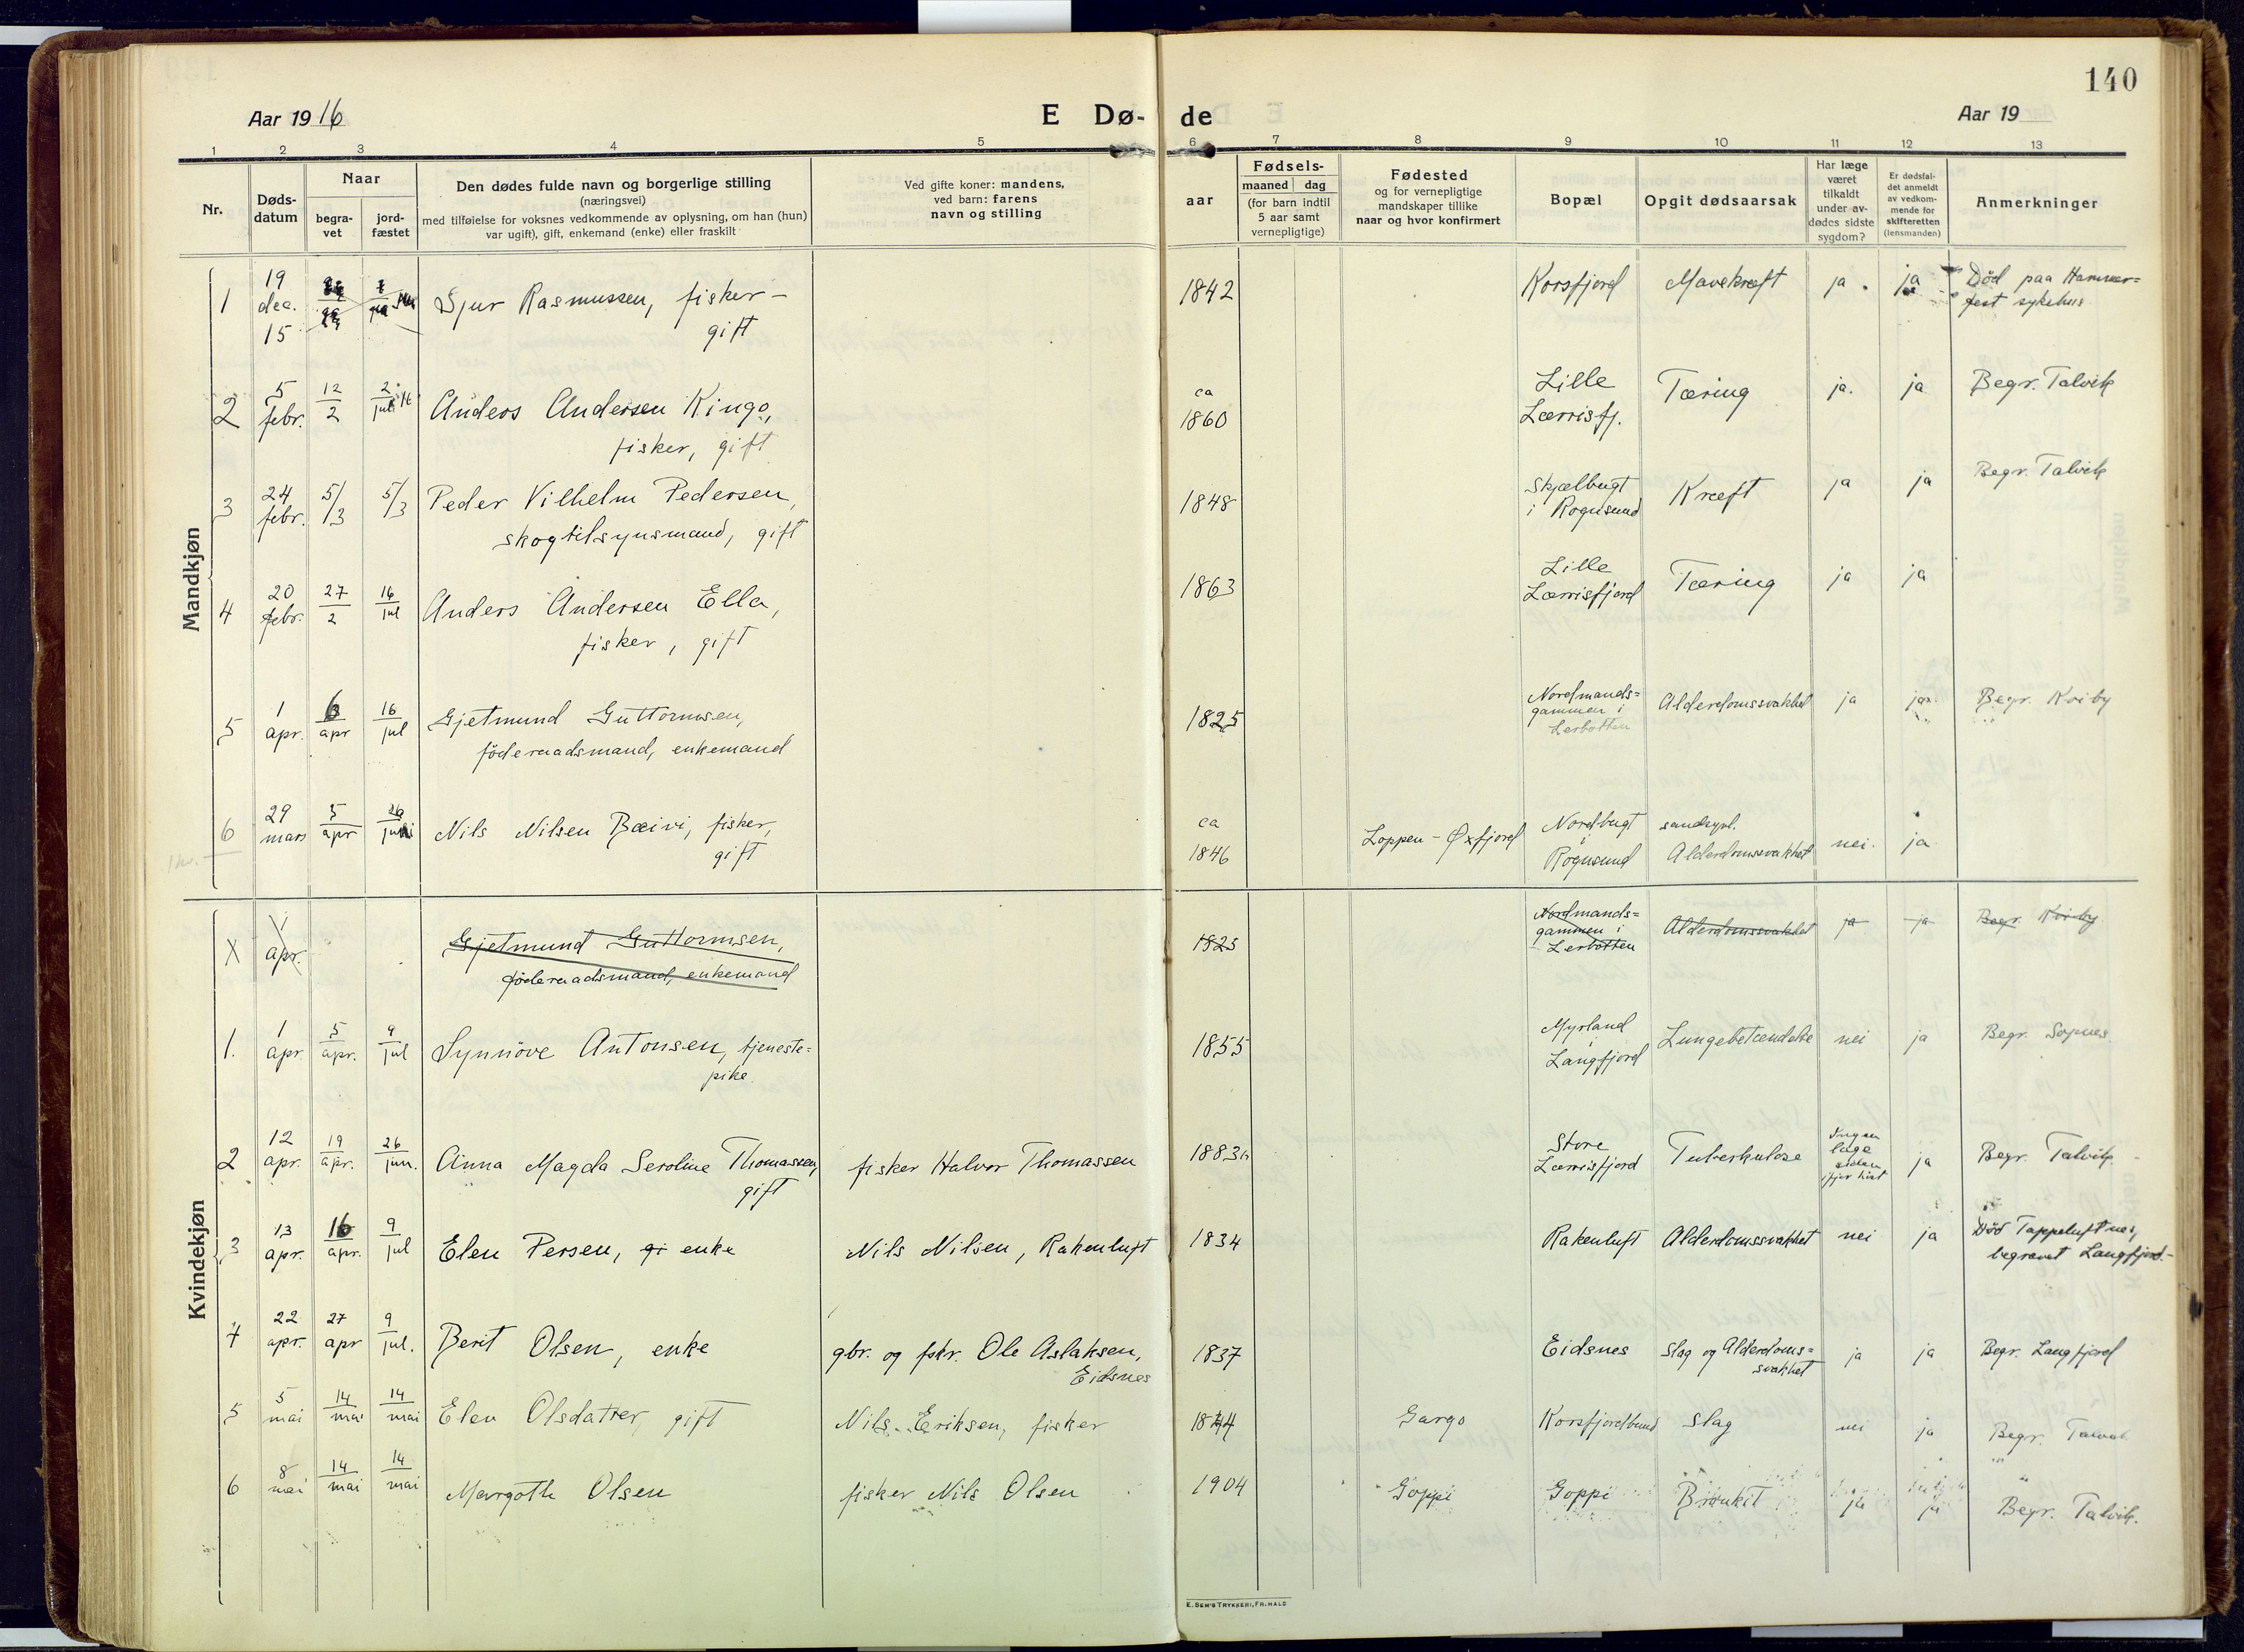 140
Aar 1916
E Dø-
de
Aar 19
1 2 3 4 5 6 7 8 9 10 11 12 13
Nr.
Døds-
datum
Naar
begra-
vet
jord-
fæstet
Den dødes fulde navn og borgerlige stilling
(næringsvei)
med tilføielse for voksnes vedkommende av oplysning, om han (hun)
var ugift), gift, enkemand (enke) eller fraskilt
Ved gifte koner: mandens,
ved barn: farens
navn og stilling
aar
Fødsels-
maaned dag
(for barn indtil
5 aar samt
vernepligtige)
Fødested
og for vernepligtige
mandskaper tillike
naar og hvor konfirmert
Bopæl
Opgit dødsaarsak
Har læge
været
tilkaldt
under av-
dødes sidste
sygdom?
Er dødsfal-
det anmeldt
av vedkom-
mende for
skifteretten
(lensmanden)
Anmerkninger
Mandkjøn
1 19 dec. 15 Sjur Rasmussen, fisker – 1842 Korsfjord Mavekræft ja. ja Død paa Hammer=
gift fest sykehus
2 5 febr. 12/2 2/juli 16 Anders Andersen Kingo, ca 1860 Lille Lærrisfj. Tæring ja. ja Begr. Talvik
fisker, gift
3 24 febr. 5/3 5/3 Peder Vilhelm Pedersen, 1848 Skjælbugt i Rognsund Kræft ja ja Begr. Talvik
skogtilsynsmand, gift
4 20 febr. 27/2 16/jul Anders Andersen Ella, 1863 Lille Lærrisfjord Tæring ja ja
fisker, gift
5 1 apr. 6/apr 16/jul Gjetmund Guttormsen, 1825 Nordmands= gammen i Lerbotten Alderdomssvakhet ja ja Begr. Kviby
föderaadsmand, enkemand
6 29 mars 5/apr 26/juni Nils Nilsen Bæivi, fisker, ca 1846 Loppen – Øxfjord Nordbugt i Rognsund sandsynl. Alderdomssvakhet nei. ja
gift
Kvindekjøn
X 1 apr. Gjetmund Guttormsen, 1825 Nordmands= gammen i Lerbotten Alderdomssvakhet ja ja Begr. Kviby
föderaadsmand, enkemand
1. 1 apr. 5/apr. 9/jul Synnöve Antonsen, tjeneste= 1855 Myrland i Langfjord Lungebetændelse nei ja Begr. Sopnes
pike
2 12 apr. 19/apr. 26/jun. Anna Magda Seroline Thomassen, fisker Halvor Thomassen 1883 Store Lærrisfjord Tuberkulose Ingen læge siden ifjor høst ja Begr. Talvik
gift
3 13 apr. 16/apr. 9/jul Elen Persen, gi enke Nils Nilsen, Rakenluft 1834 Rakenluft Alderdomssvakhet nei ja Död Tappeluftnes,
begravet Langfjord.-
4 22 apr. 27 apr 9/jul. Berit Olsen, enke gbr. og fskr. Ole Aslaksen, 1837 Eidsnes slag og Alderdoms= ja ja Begr. Langfjord
Eidsnes svakhet
5 5 mai 14/mai 14/mai Elen Olsdatter, gift Nils Eriksen, fisker 1844 Gargo Korsfjordbund slag nei ja Begr. Talvik
6 8 mai 14/mai 14/mai Margoth Olsen fisker Nils Olsen 1904 Goppi Goppi Bronkit ja ja Begr. Talvik.
E. SEM'S TRYKKERI, FR.HALD